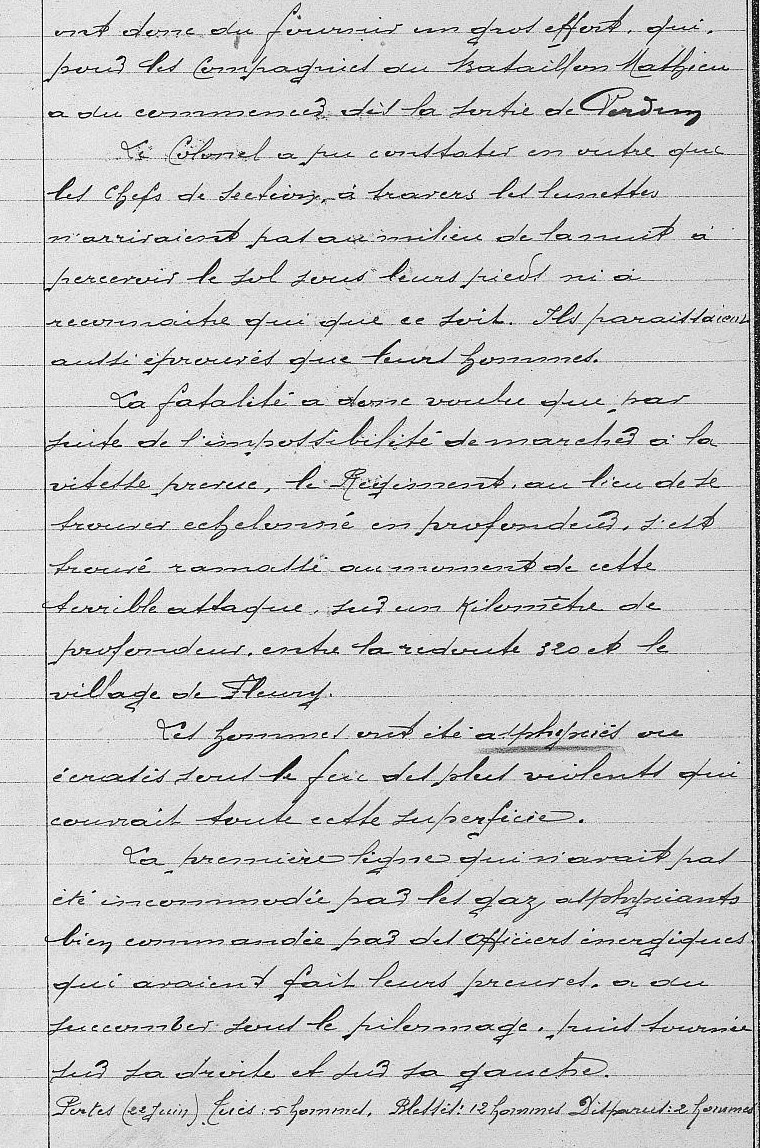 ont donc du fournir un gros effort, qui,
pour les Compagnies du Bataillon Mathieu
a du commencer dès la sortie de Verdun
Le Colonel a pu constater en outre que
les chefs de section, à travers les lunettes
n'arrivaient pas au milieu de la nuit à
percevoir le sol sous leurs pieds ni à
reconnaitre qui que ce soit. Ils paraissaient
aussi éprouvés que leurs hommes.
La fatalité a donc voulu que, par
suite de l'impossibilité de marcher à la
vitesse prevue, le Régiment, au lieu de se
trouver echelonné en profondeur, s'est
trouvé ramassé au moment de cette
terrible attaque, sur un Kilomètre de
profondeur, entre la redoute 320 et le
village de Fleury.
Les hommes ont été asphyxiés ou
écrasés sous le feu des plus violents qui
couvrait toute cette superficie.
La première ligne qui n'avait pas
été incommodée par les gaz asphyxiants
bien commandée par des officiers énergiques
qui avaient fait leurs preuves, a du
succomber sous le pilonnage, puis tournée
sur sa droite et sur sa gauche.
Pertes (22 Juin) Tués : 5 hommes, Blessés : 12 hommes Disparus : 2 hommes